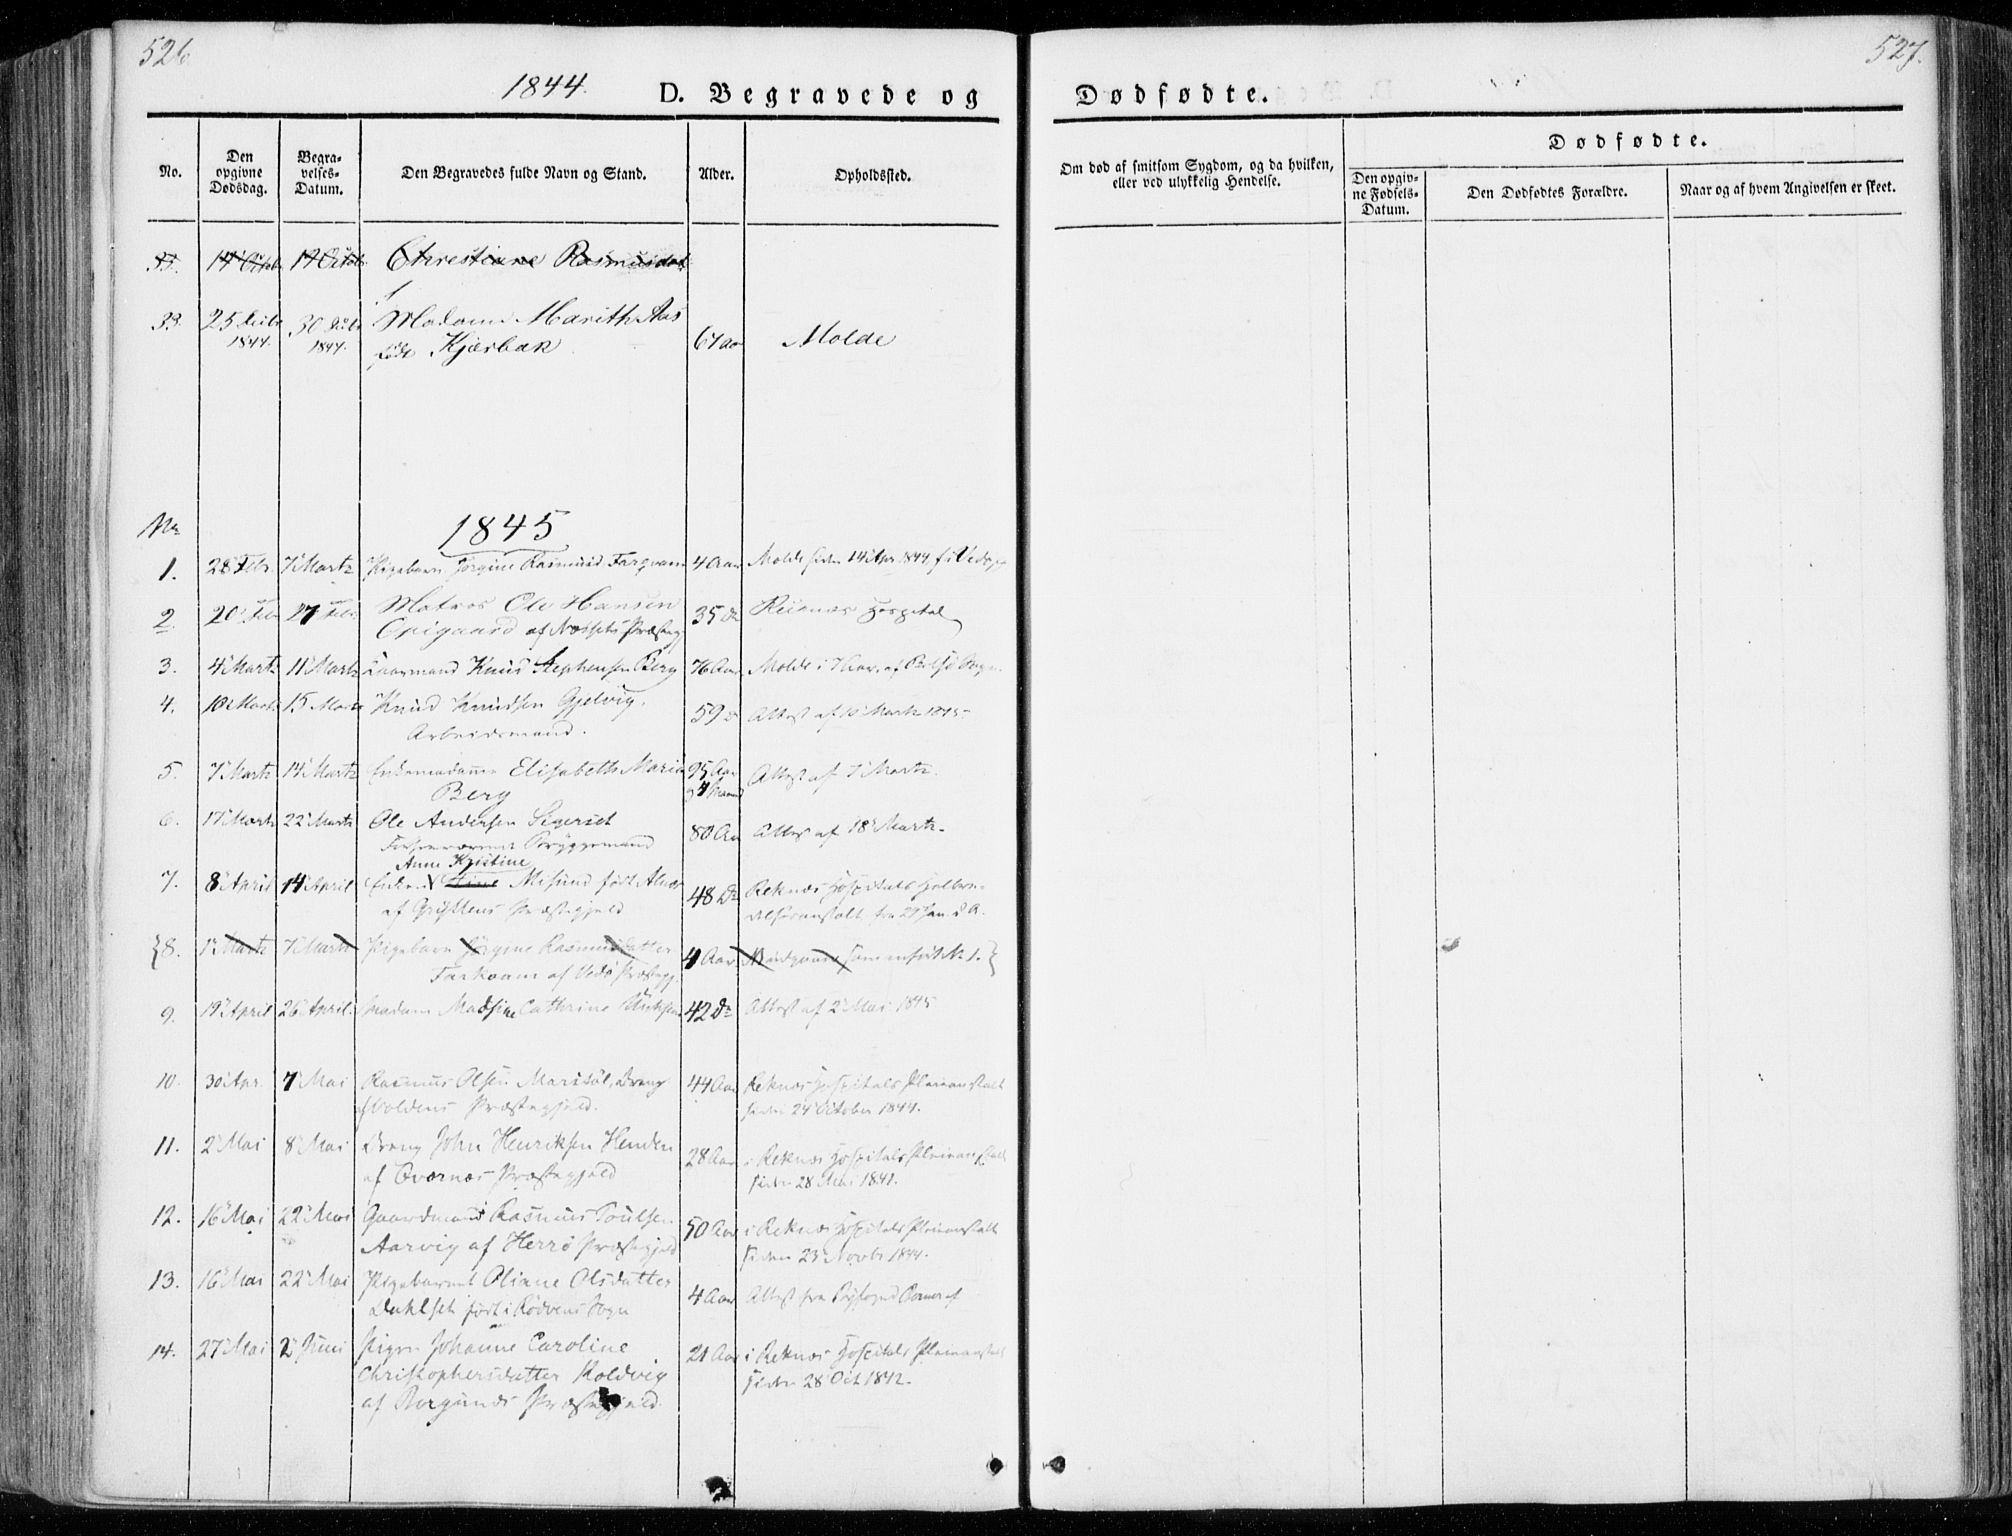 526
527.
1844.
D. Begravede og
Dødfødte.
No.
Den opgivne Dødsdag.
Begravelses-Datum.
Den Begravedes fulde Navn og Stand.
Alder.
Opholdssted.
Om død af smitsom Sygdom, og da hvilken, eller ved ulykkelig Hendelse.
Dødfødte.
Den opgivne Fødsels-Datum.
Den Dødfødtes Forældre.
Naar og af hvem Angivelsen er skeet.
33. 14 Octob 19 Octob Christiane Rasmusdat
33. 25 1844. 30 1844. Madame Marith Aas
født Kjærbak 67 Aar Molde
No 1845
1. 28 Febr 7 Martz Pigebarn Jørgine Rasmusd Farqvam 4 Aar Molde siden 14 Apr 1844
2. 20 Feb 27 Feb Matros Ole Hansen
Opigaard af Næssets Præsteg 35 Do Reknæs Hospital
3. 4 Martz 11 Martz Knud Stephensen Berg 76 Aar Molde i 7 Aar, af Bolsø Sogn
4. 10 Martz 15 Martz Knud Knudsen Gjelvig.
Arbeidsmand. 59 Do Attest af 10 Martz 1845
5. 7 Martz 14 Martz Enkemadame Elisabeth Maria
Berg 95 Aar og 4 Maaned Attest af 7 Martz.
6. 17 Martz 22 Martz Ole Andersen Segerset
Forhenværende Bryggemand 80 Aar Attest af 18 Martz.
Anne Kristine
7. 8 April 14 April Enken Stine Misund født
af Gryttens Præstegjeld 48 Do Reknæs Hospitals
fra 29 Jan. d. A.
8. 1 Martz 7 Martz Pigebarn Jørgine Rasmusdatter
Farkvam af Vedø Præstegj. 4 Aar No 1.
9. 19 April 26 April. Madam Madsine Cathrine 42 Do Attest af 2 Mai 1845
10. 30 Apr. 7 Mai Rasmus Olsen Dreng
af Voldens Præstegjeld. 44 Aar Reknæs Hospitals Pleieanstalt
siden 24 October 1844.
11. 2 Mai 8 Mai Dreng John Henriksen Henden
af Qværnæs Præstegjeld 28 Aar i Reknæs Hospitals Pleieanstalt
siden 28 Mai 1842.
12. 16 Mai 22 Mai Gaardmand Rasmus Poulsen
Aarvig af Herrø Præstegjeld 50 Aar i Reknæs Hospitals Pleieanstalt
siden 23 Novbr 1844.
13. 16 Mai 22 Mai Pigebarnet Oliane Olsdatter
Dahlset født i Rødvens Sogn 4 Aar Attest fra
14. 27 Mai 2 Juni Pigen Johanne Caroline
Christophersdatter Koldvig
af Borgunds Præstegjeld 21 Aar i Reknæs Hospitals Pleieanstalt
siden 28 Oct 1842.